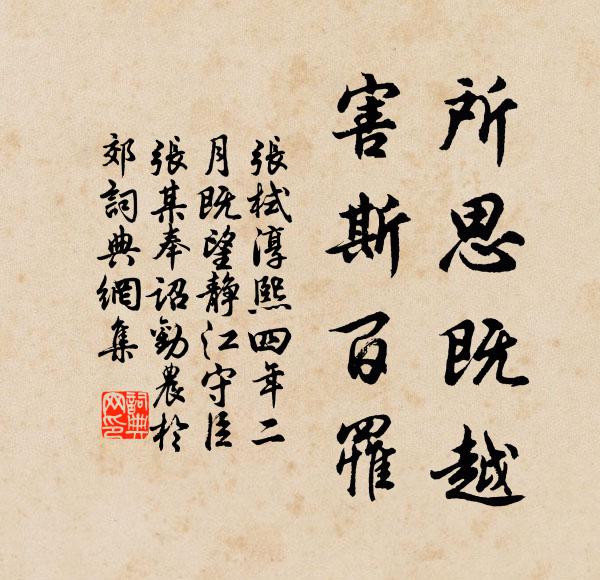 所思既越
害斯百罹
張栻淳熙四年二
月既望靜江守臣
張某奉詔勸農於
郊詞典網集
詞典
网印